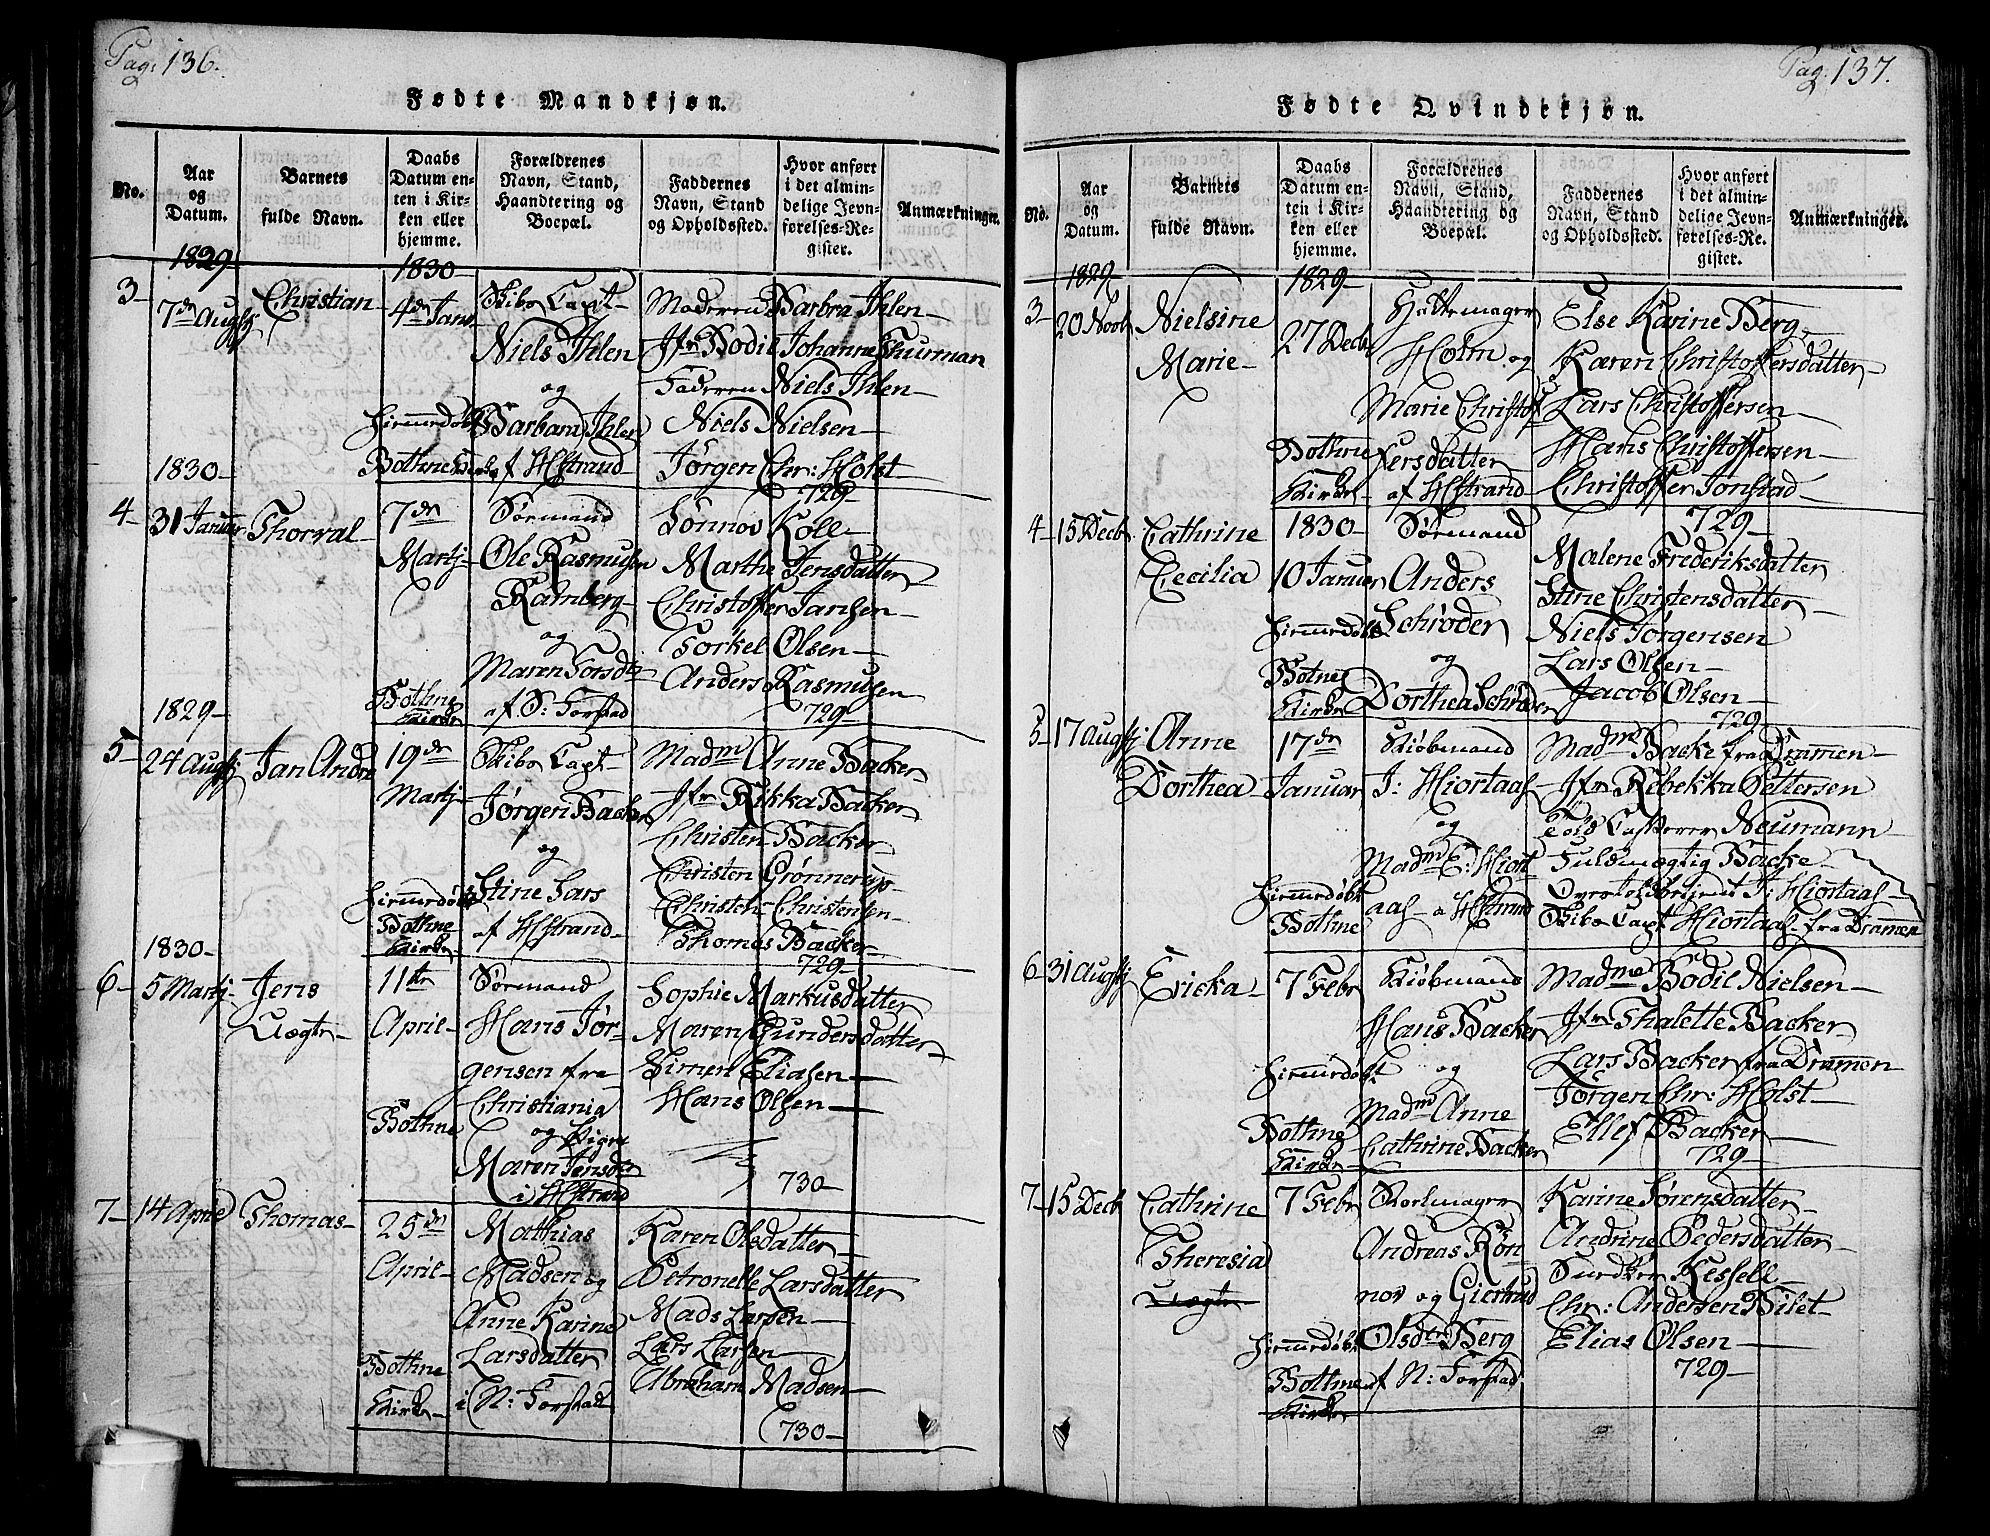 Pag: 136.
Fødte Mandkjøn.
No.
Aar og Datum.
Barnets fulde Navn.
Daabs Datum enten i Kirken eller hjemme.
Forældrenes Navn, Stand, Haandtering og Boepæl.
Faddernes Navn, Stand og Opholdssted.
Hvor anført i det almindelige Jevnførelses-Register.
Anmærkninger.
1829
3
7de Augustj
Christian
1830
4de Janr
Hjemmedøbt
Bothne Kirke
Skibs Capt
Niels Ihlen
og
Barbara Ihlen
af Hstrand
Moderen Barbra Ihlen
Jfr Bodil Johanne Thurman
Faderen Niels Ihlen
Niels Nielsen
Jørgen Chr: Holst
729
1830
4
31 Januar
Thorval
7de
Martj
Bothne
Kirke
Sørmand
Ole Rasmusen
Ramberg
og
Maren Torsdtr
af S: Forstad
Lønnov Kølle
Marthe Jensdatter
Christoffer Jansen
Torkel Olsen
Anders Rasmusen
729
1829
5
24 Augustj
Jan Andre
19de
Martj
Hjemmedøbt
Bothne
Kirke
Skibs Capt
Jørgen Backer
og
Stine Lars
af Hstrand
Madme Anne Backer
Jfr Rikka Backer
Christen Backer
Christen Grønnerup
Christen Christensen
Thomas Backer
729
1830
6
5 Martj
Jens
Uægte
11te
April
Bothne
Sørmand
Hans Jør
gensen fra
Christiania
og Pige
Maren Jensdtr
i Hstrand
Sophie Markusdatter
Maren Gundersdatter
Simen Eliasen
Hans Olsen
730
7
14 April
Thomas
25de
April
Bothne
Kirke
Mathias
Madsen og
Anne Karine
Larsdatter
i N: Forstad
Karen Olsdatter
Petronelle Larsdatter
Mads Larsen
Lars Larsen
Abraham Madsen
730
Pag: 137.
Fødte Qvindekjøn.
No.
Aar og Datum.
Barnets fulde Navn.
Daabs Datum enten i Kirken eller hjemme.
Forældrenes Navn, Stand, Haandtering og Boepæl.
Faddernes Navn, Stand og Opholdssted.
Hvor anført i det almindelige Jevnførelses-Register.
Anmærkninger.
1829
3
20 Novb
Nielsine
Marie
1829
27 Decb
Bothne
Kirke
Hattemager
Holm og
Marie Christof
fersdatter
af Hstrand
Else Karine Berg
Karen Christoffersdatter
Lars Christoffersen
Hans Christoffersen
Christoffer Jonstad
729
4
15 Decb
Cathrine
Cecilia
1830
10 Januar
Hjemmedøbt
Botne
Kirke
Sørmand
Anders
Schrøder
og
Dorthea Schrøder
Malene Frederiksdatter
Stine Christensdatter
Niels Jørgensen
Lars Olsen
Jacob Olsen
729
5
17 Augustj
Anne
Dorthea
17de
Januar
Hjemmedøbt
Bothne
Kiøbmand
J: Hiortaas
og
Madm E: Hiort
aas a Hstrand
Madme Backe fra Dramen
Jfr Rebekka Pettersen
Told Casserer Neumann
Fuldmægtig Backe
J: Hiortaas
Skibs Capt Hiortaas fra Dramen
6
31 Augustj
Ericka
7 Febr
Hjemmedøbt
Bothne
Kirke
Kiøbmand
Hans Backer
og
Madm Anne
Cathrine Backer
Madme Bodil Nielsen
Jfr Thalette Backer
Lars Backer fra Dramen
Jørgen Chr: Holst
Ellef Backer
729
7
15 Decb
Cathrine
Theresia
Uægte
7 Febr
Hjemmedøbt
Bothne
Kirke
Andreas Røn
nov og Giertrud
Olsdtr Berg
af N: Forstad
Karine Sørensdatter
Andrine Pedersdatter
Kessell
Chr: Andersen Bilet
Elias Olsen
729